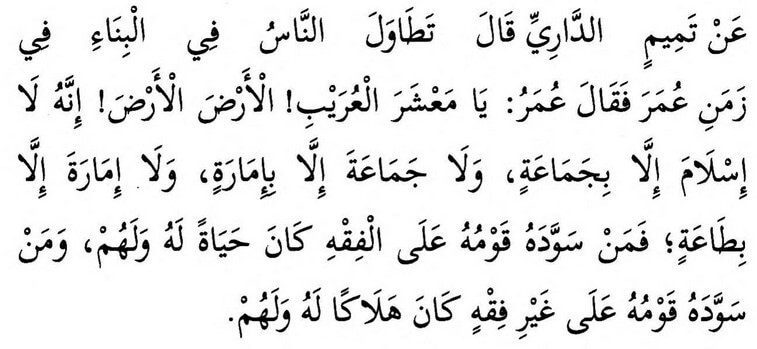 عَنْ تَمِيمٍ الدَّارِيِّ قَالَ تَطَاوَلَ النَّاسُ فِي الْبِنَاءِ فِي
زَمَنِ عُمَرَ فَقَالَ عُمَرُ: يَا مَعْشَرَ الْعُرَيْبِ! الْأَرْضَ الْأَرْضَ! إِنَّهُ لَا
إِسْلَامَ إِلَّا بِجَمَاعَةٍ، وَلَا جَمَاعَةَ إِلَّا بِإِمَارَةٍ، وَلَا إِمَارَةَ إِلَّا
بِطَاعَةٍ؛ فَمَنْ سَوَّدَهُ قَوْمُهُ عَلَى الْفِقْهِ كَانَ حَيَاةً لَهُ وَلَهُمْ، وَمَنْ
سَوَّدَهُ قَوْمُهُ عَلَى غَيْرِ فِقْهٍ كَانَ هَلَاكًا لَهُ وَلَهُمْ.